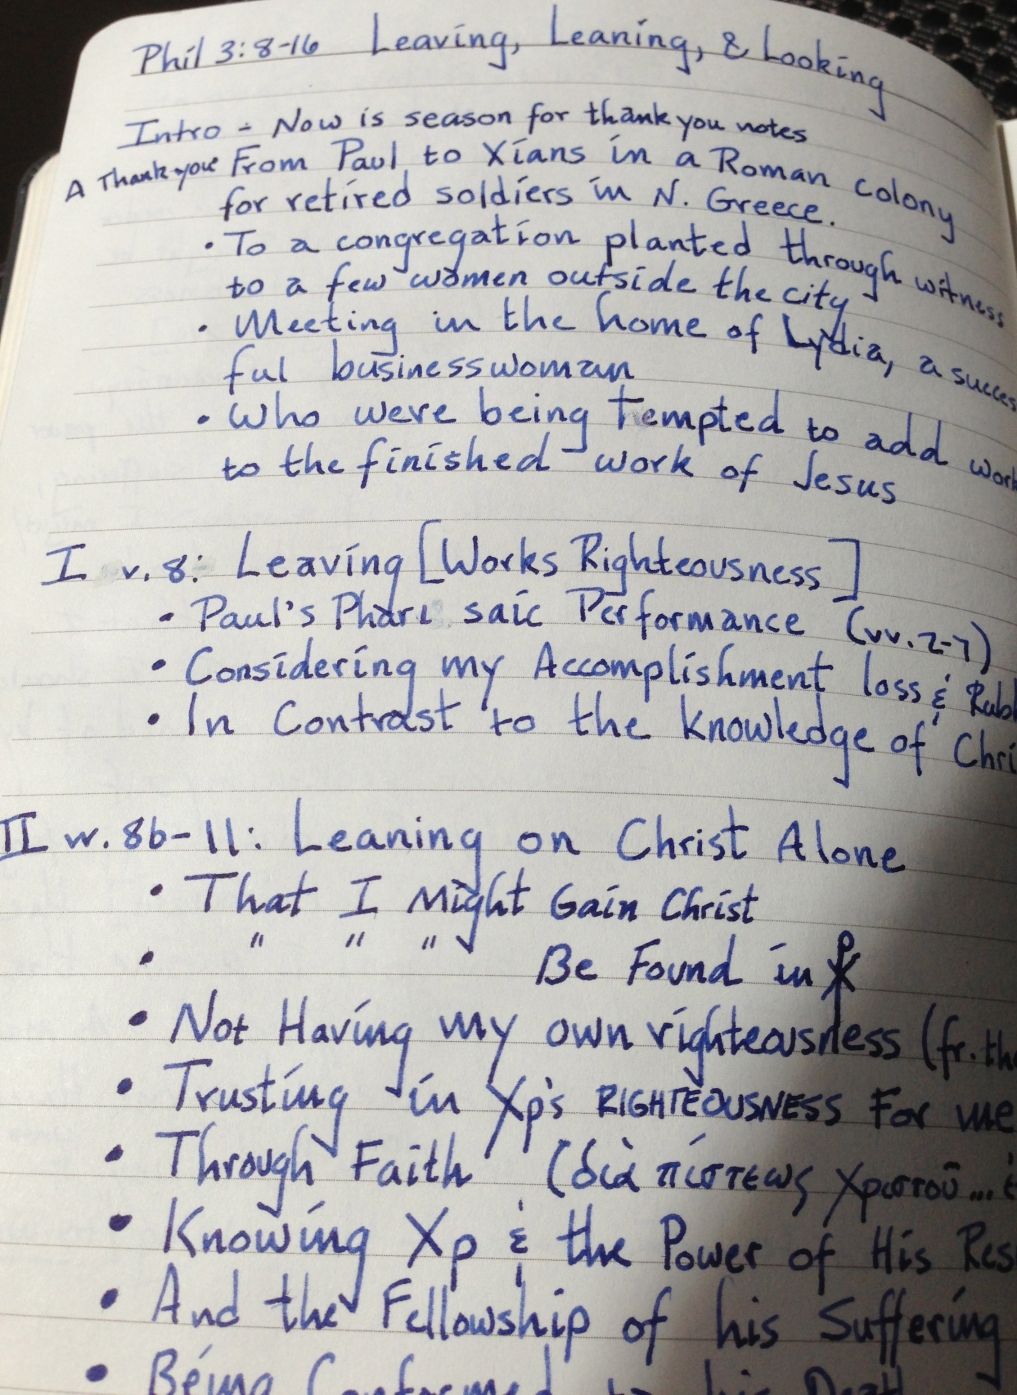 Phil 3:8-16 Leaving, Leaning, & Looking
Intro - Now is season for thank you notes
A Thank-you From Paul to Xians in a Roman colony
for retired soldiers in N. Greece.
• To a congregation planted through witness
to a few women outside the city
• Meeting in the home of Lydia, a succes
ful businesswoman
• Who were being tempted to add work
to the finished work of Jesus
I v.8: Leaving [Works Righteousness]
• Paul's Pharisaic Performance (vv.2-7)
• Considering my Accomplishment loss & Rub
• In Contrast to the knowledge of Chri
II vv. 8b-11: Leaning on Christ Alone
• That I Might Gain Christ
• " " " Be Found in ☧
• Not Having my own righteousness (fr. th
• Trusting in Xp's RIGHTEOUSNESS For me
• Through Faith (διὰ πίστεως Χριστοῦ...
• Knowing Xp & the Power of His Res
• And the Fellowship of his Suffering
• Being Conformed to his Death